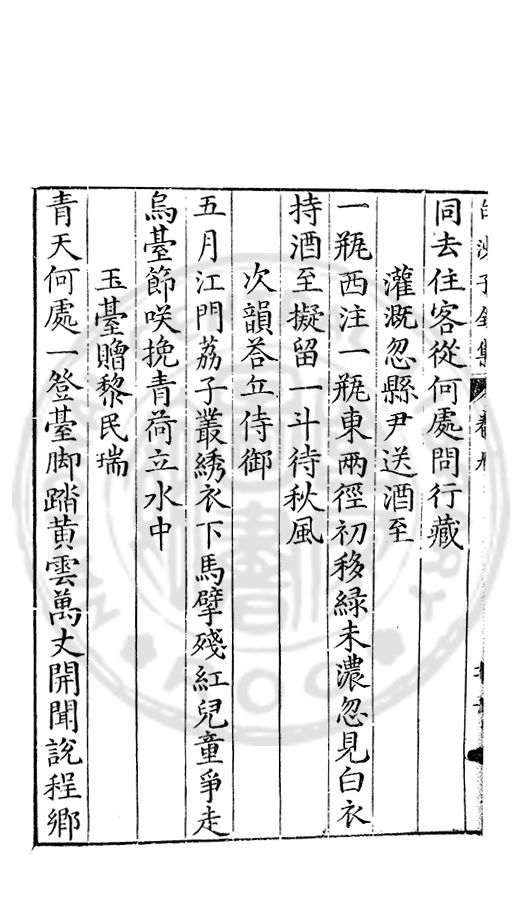 白沙子全集 卷九
同去住客從何處問行藏
灌溉忽縣尹送酒至
一瓶西注一瓶東兩徑初移綠未濃忽見白衣
持酒至擬留一斗待秋風
次韻荅丘侍御
五月江門荔子叢綉衣下馬擘殘紅兒童爭走
烏臺節咲挽青荷立水中
玉臺贈黎民瑞
青天何處一登臺脚踏黄雲萬丈開聞說程鄉